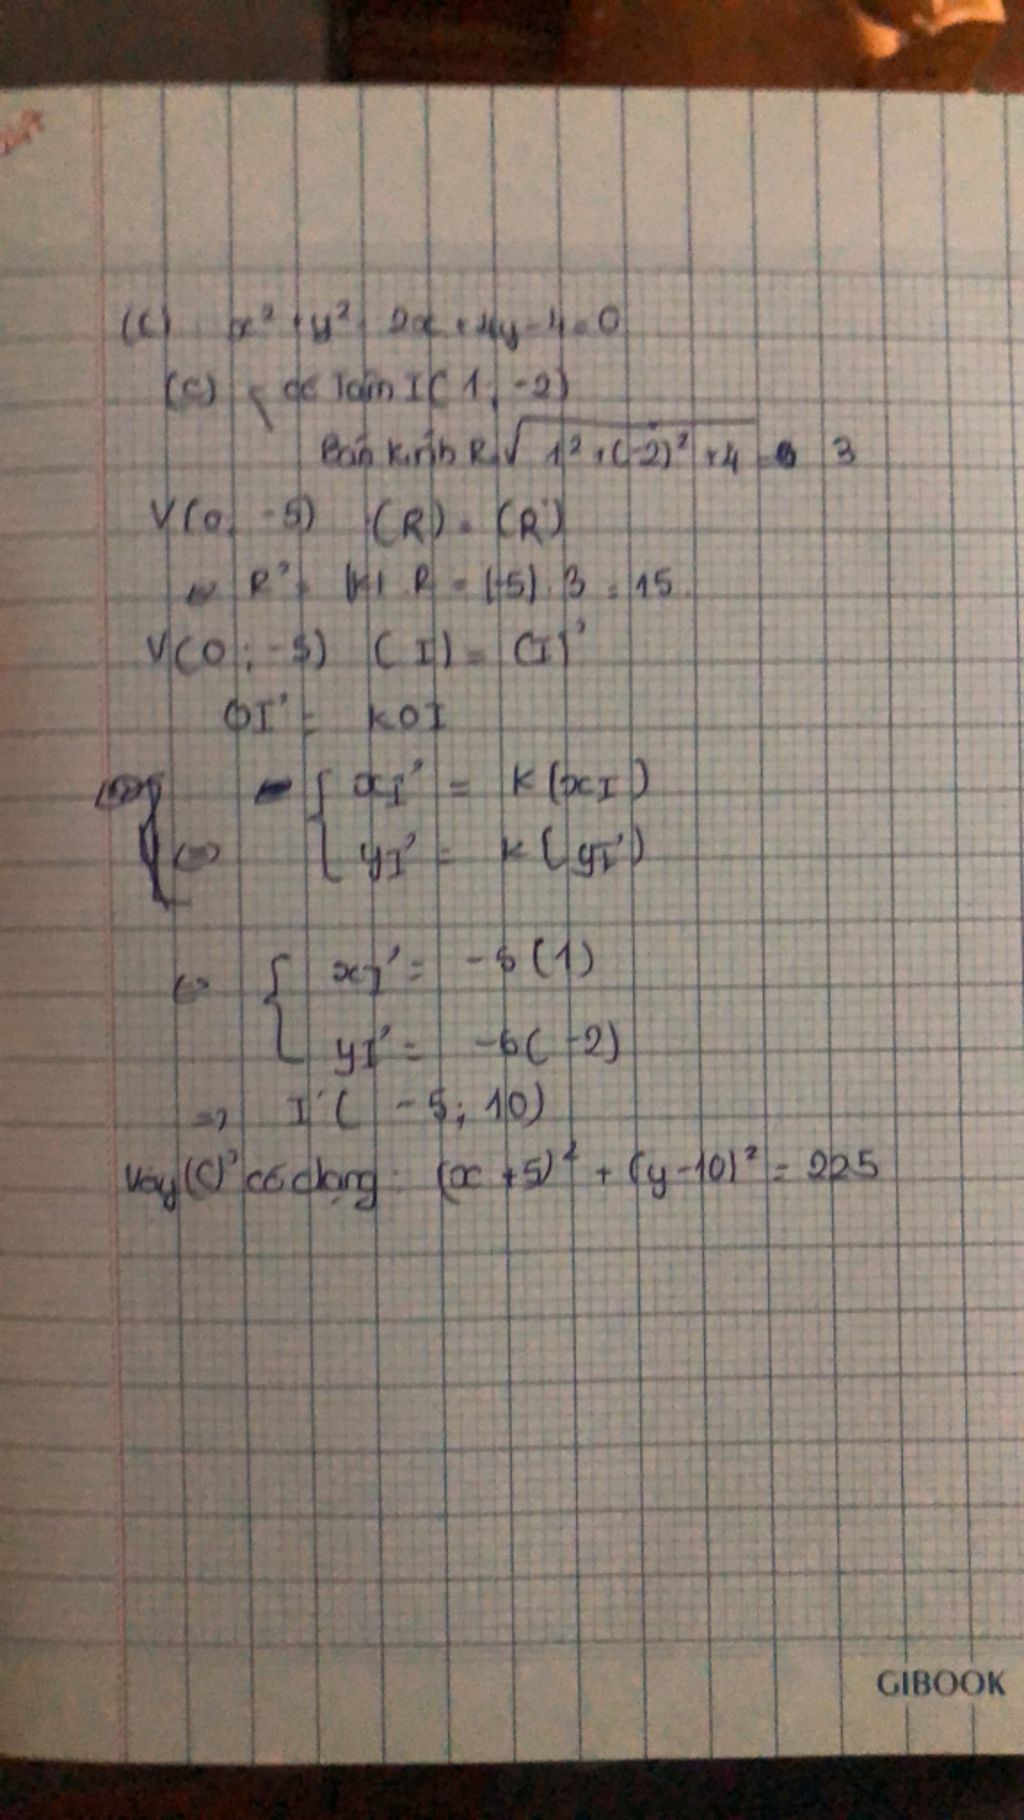 (C) x² + y² - 2x + 4y - 4 = 0
(C) { có tâm I (1; -2)
Bán kính R = √1² + (-2)² + 4 = 3
V(0; -5) (R) = (R')
R' = |k| . R = |-5| . 3 = 15
V(0; -5) (I) = (I)'
OI' = kOI
{ xI' = k(xI)
<=> yI' = k(yI')
<=> { xI' = -5(1)
yI' = -5(-2)
=> I'( -5; 10)
Vậy (C)' có dạng: (x + 5)² + (y - 10)² = 225
GIBOOK